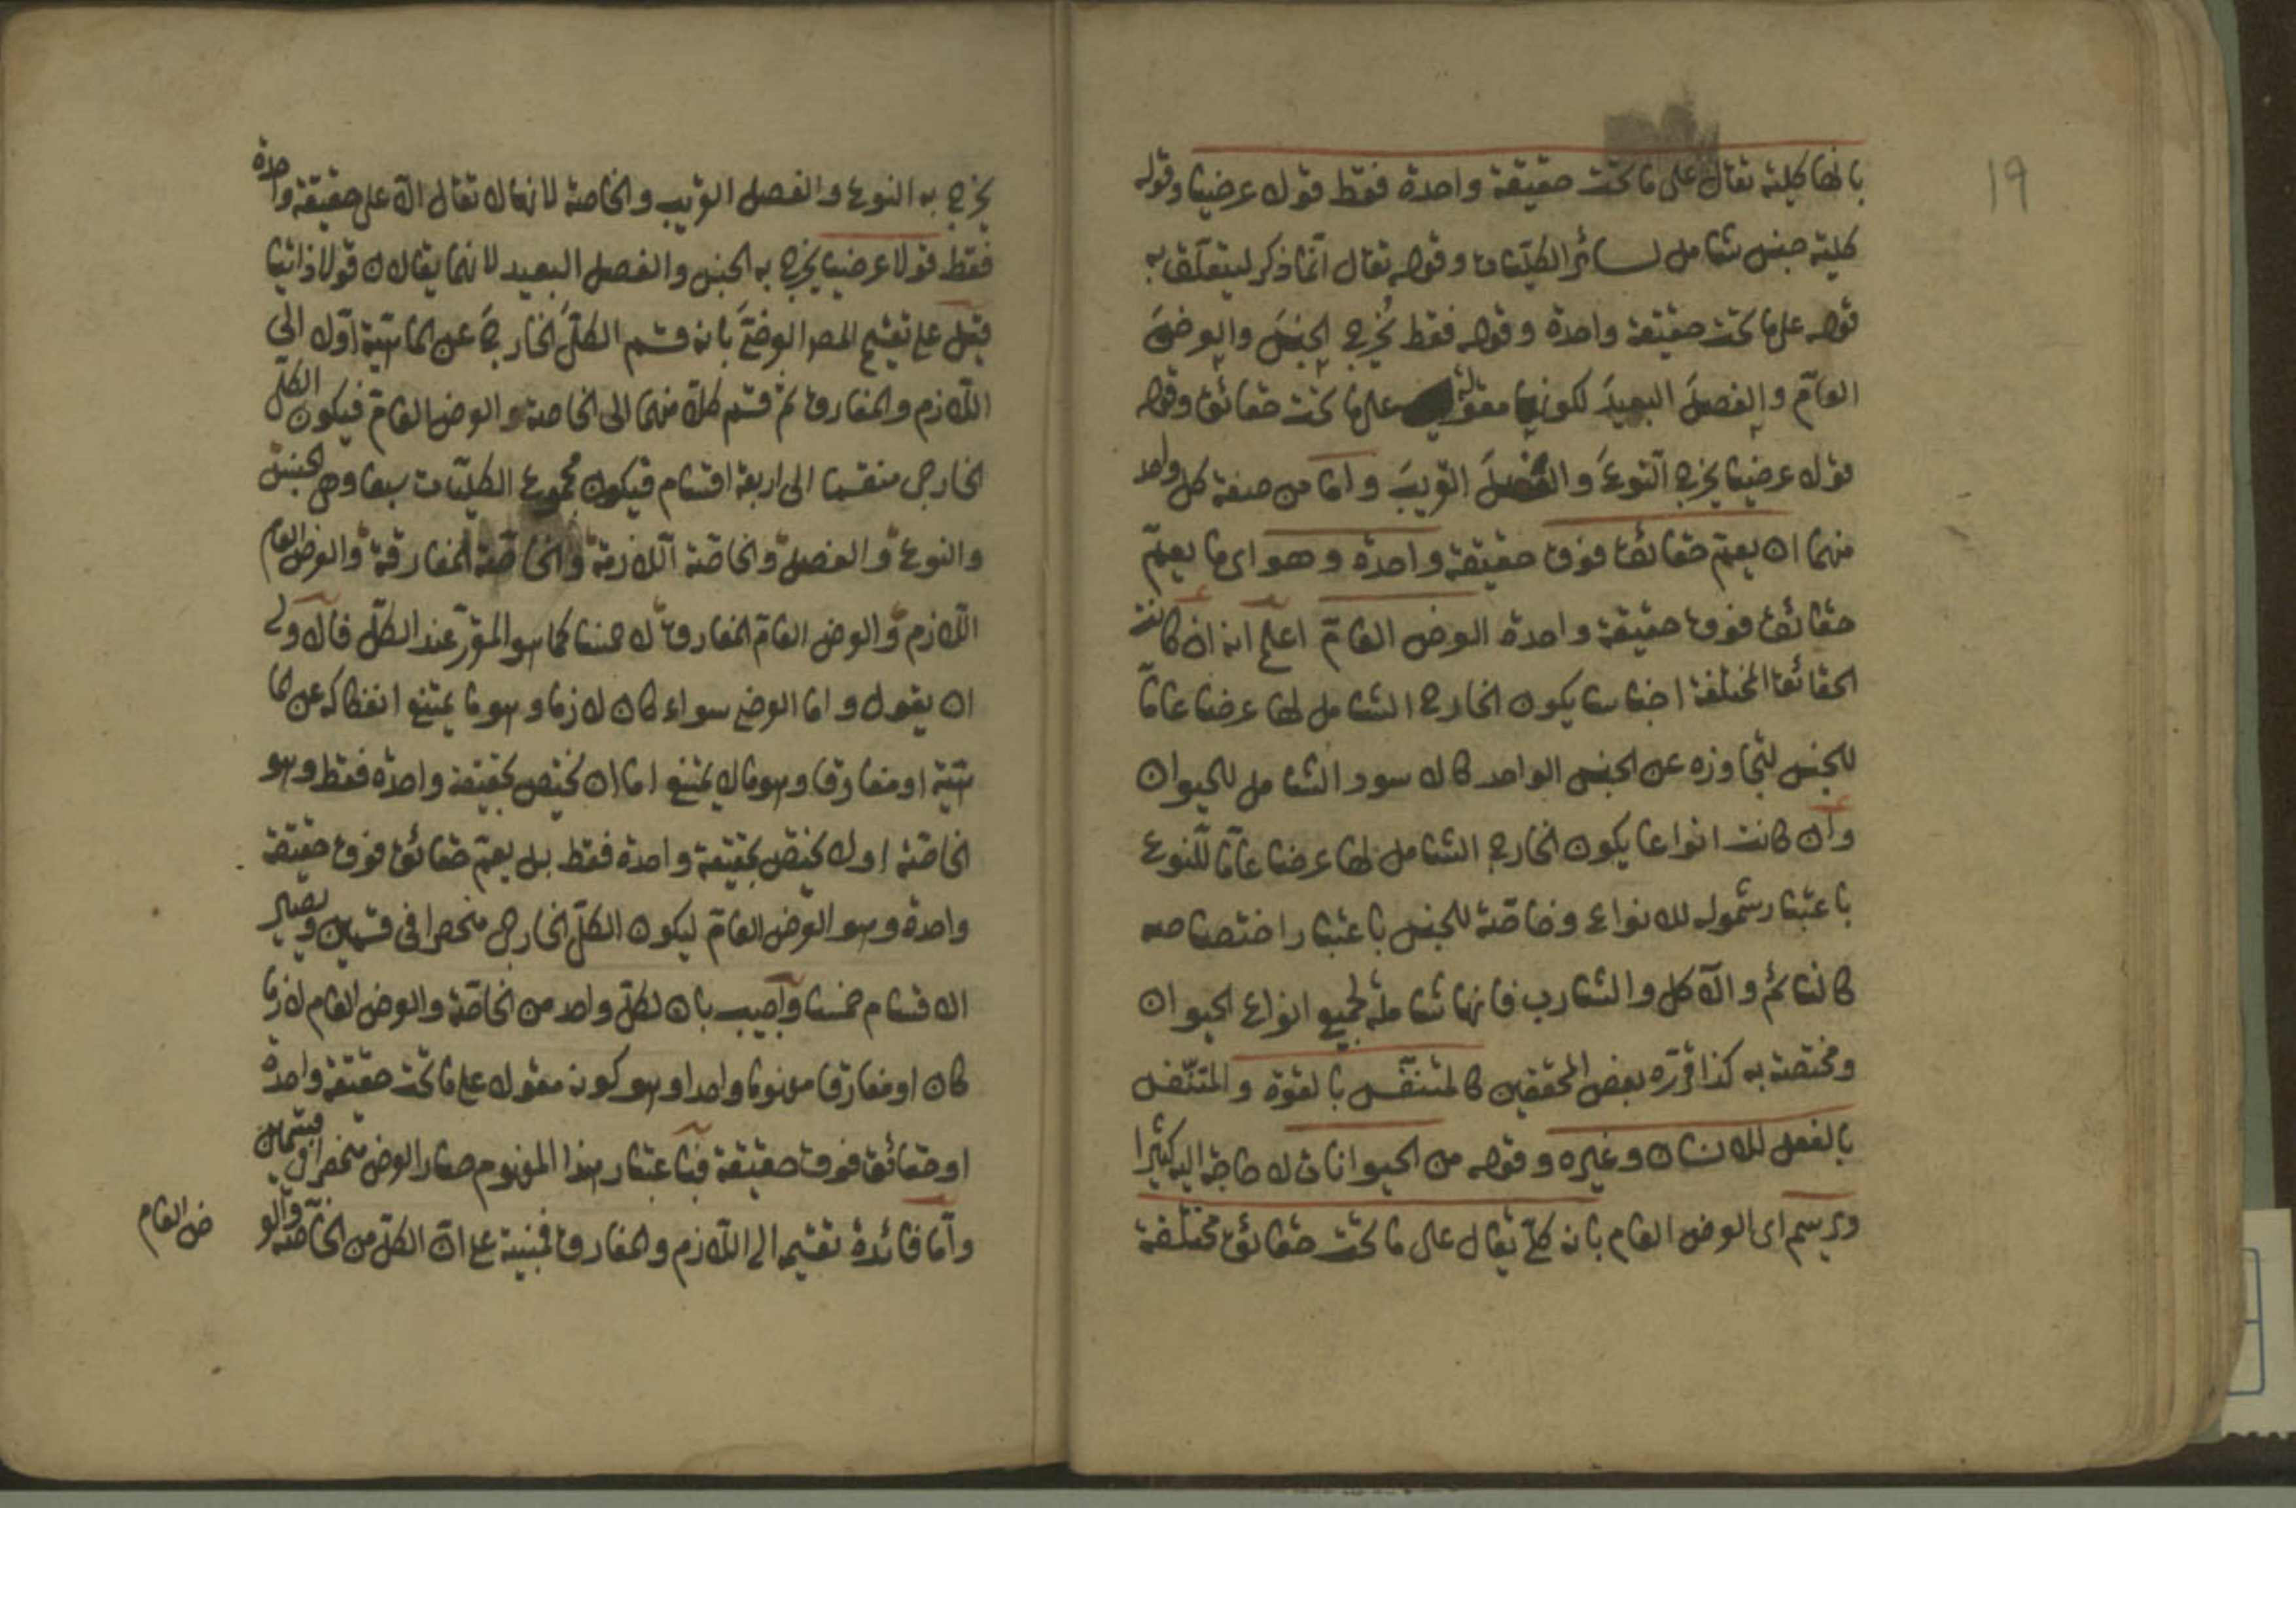 ١٩
بانها كلية تقال على ما تحت حقيقة واحدة فقط قولا عرضيا وقوله
كلية جنس شامل لسائر الكليات وقوله تقال انما ذكر ليتعلق به
قوله على ما تحت حقيقة واحدة وقوله فقط يُخرج الجنسَ والعرضَ
العامّ والفصلَ البعيدَ لكونها مقولة على ما تحت حقائق وقوله
قولا عرضيا يخرج النوعَ والفصلَ القريبَ واما من صفة كل واحد
منهما ان يعمّ حقائق فوق حقيقة واحدة وهو اى ما يعمّ
حقائق فوق حقيقة واحدة العرض العامّ اعلم انه ان كانت
الحقائق المختلفة اجناسا يكون الخارج الشامل لها عرضا عامّا
للجنس لتجاوزه عن الجنس الواحد كالاسود الشامل للحيوان
وان كانت انواعا يكون الخارج الشامل لها عرضا عامّا للنوع
باعتبار شموله للانواع وخاصّة للجنس باعتبار اختصاصه
كالنائم والآكل والشارب فانها شاملة لجميع انواع الحيوان
ومختصة به كذا قرّره بعض المحققين كالمتنفّس بالقوة والمتنفّس
بالفعل للانسان وغيره وقوله من الحيوانات لا حاجة اليه كثيرا
ويرسم اى العرض العام بانه كلّي يقال على ما تحت حقائق مختلفة
يخرج به النوع والفصل القريب والخاصة لانها لا تقال الّا على حقيقة واحدة
فقط قولا عرضيا يخرج به الجنس والفصل البعيد لانهما يقالان قولا ذاتيا
قيل على تقسيم المص العرضيَّ بانه قسم الكلّيَ الخارجيَ عن الماهيّة اوّلا الى
اللازم والمفارق ثم قسم كلّا منهما الى الخاصة والعرض العامّ فيكون الكلّى
الخارجى منقسما الى اربعة اقسام فيكون مجموع الكليّات سبعا وهى الجنس
والنوع والفصل والخاصّة اللازمة والخاصّة المفارقة والعرض العام
اللازم والعرض العامّ المفارق لا خمسا كما هو المقرّر عند الكلّ فالاولى
ان يقول واما العرضى سواء كان لازما وهو ما يمتنع انفكاكه عن الما
هيّة او مفارقا وهو ما لا يمتنع اما ان يختص بحقيقة واحدة فقط وهو
الخاصّة او لا يختص بحقيقة واحدة فقط بل يعمّ حقائق فوق حقيقة
واحدة وهو العرض العامّ ليكون الكلّى الخارجى منحصرا فى قسمين ويصير
الاقسام خمسا واجيب بان لكلّ واحد من الخاصّة والعرض العام لازما
كان او مفارقا مفهوما واحدا وهو كونه مقولا على ما تحت حقيقة واحدة
او حقائق فوق حقيقة فباعتبار هذا المفهوم صار العرضى منحصرا فى قسمين
وامّا فائدة تقسيمه الى اللازم والمفارق فمبنية على انّ الكلّ من الخاصّة والعر
ض العام